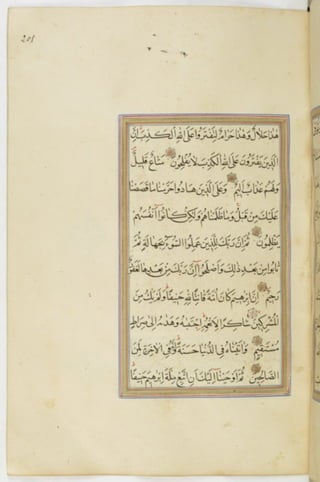 201
هٰذَا حَلَالٌ وَهٰذَا حَرَامٌ لِتَفْتَرُوا عَلَى اللّٰهِ الْكَذِبَ اِنَّ
الَّذِينَ يَفْتَرُونَ عَلَى اللّٰهِ الْكَذِبَ لَا يُفْلِحُونَ مَتَاعٌ قَلِيلٌ
وَلَهُمْ عَذَابٌ اَلِيمٌ وَعَلَى الَّذِينَ هَادُوا حَرَّمْنَا مَا قَصَصْنَا
عَلَيْكَ مِنْ قَبْلُ وَمَا ظَلَمْنَاهُمْ وَلٰكِنْ كَانُوا اَنْفُسَهُمْ
يَظْلِمُونَ ثُمَّ اِنَّ رَبَّكَ لِلَّذِينَ عَمِلُوا السُّوءَ بِجَهَالَةٍ ثُمَّ
تَابُوا مِنْ بَعْدِ ذٰلِكَ وَاَصْلَحُوا اِنَّ رَبَّكَ مِنْ بَعْدِهَا لَغَفُورٌ
رَحِيمٌ اِنَّ اِبْرٰهِيمَ كَانَ اُمَّةً قَانِتًا لِلّٰهِ حَنِيفًا وَلَمْ يَكُ مِنَ
الْمُشْرِكِينَ شَاكِرًا لِاَنْعُمِهِ اِجْتَبٰيهُ وَهَدٰيهُ اِلٰى صِرَاطٍ
مُسْتَقِيمٍ وَاٰتَيْنَاهُ فِي الدُّنْيَا حَسَنَةً وَاِنَّهُ فِي الْاٰخِرَةِ لَمِنَ
الصَّالِحِينَ ثُمَّ اَوْحَيْنَا اِلَيْكَ اَنِ اتَّبِعْ مِلَّةَ اِبْرٰهِيمَ حَنِيفًا